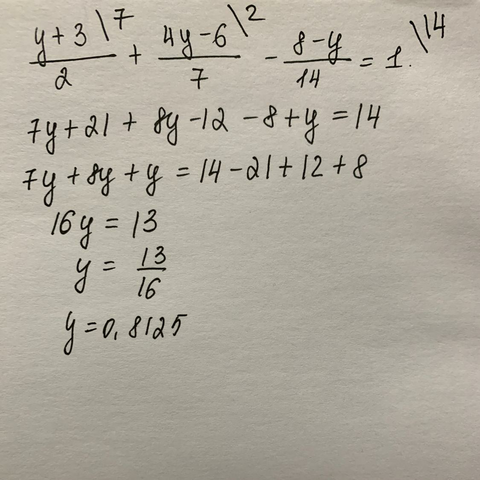 (y+3)/2 \7 + (4y-6)/7 \2 - (8-y)/14 = 1. \14
7y+21 + 8y-12 -8+y = 14
7y+8y+y = 14-21+12+8
16y = 13
y = 13/16
y = 0,8125